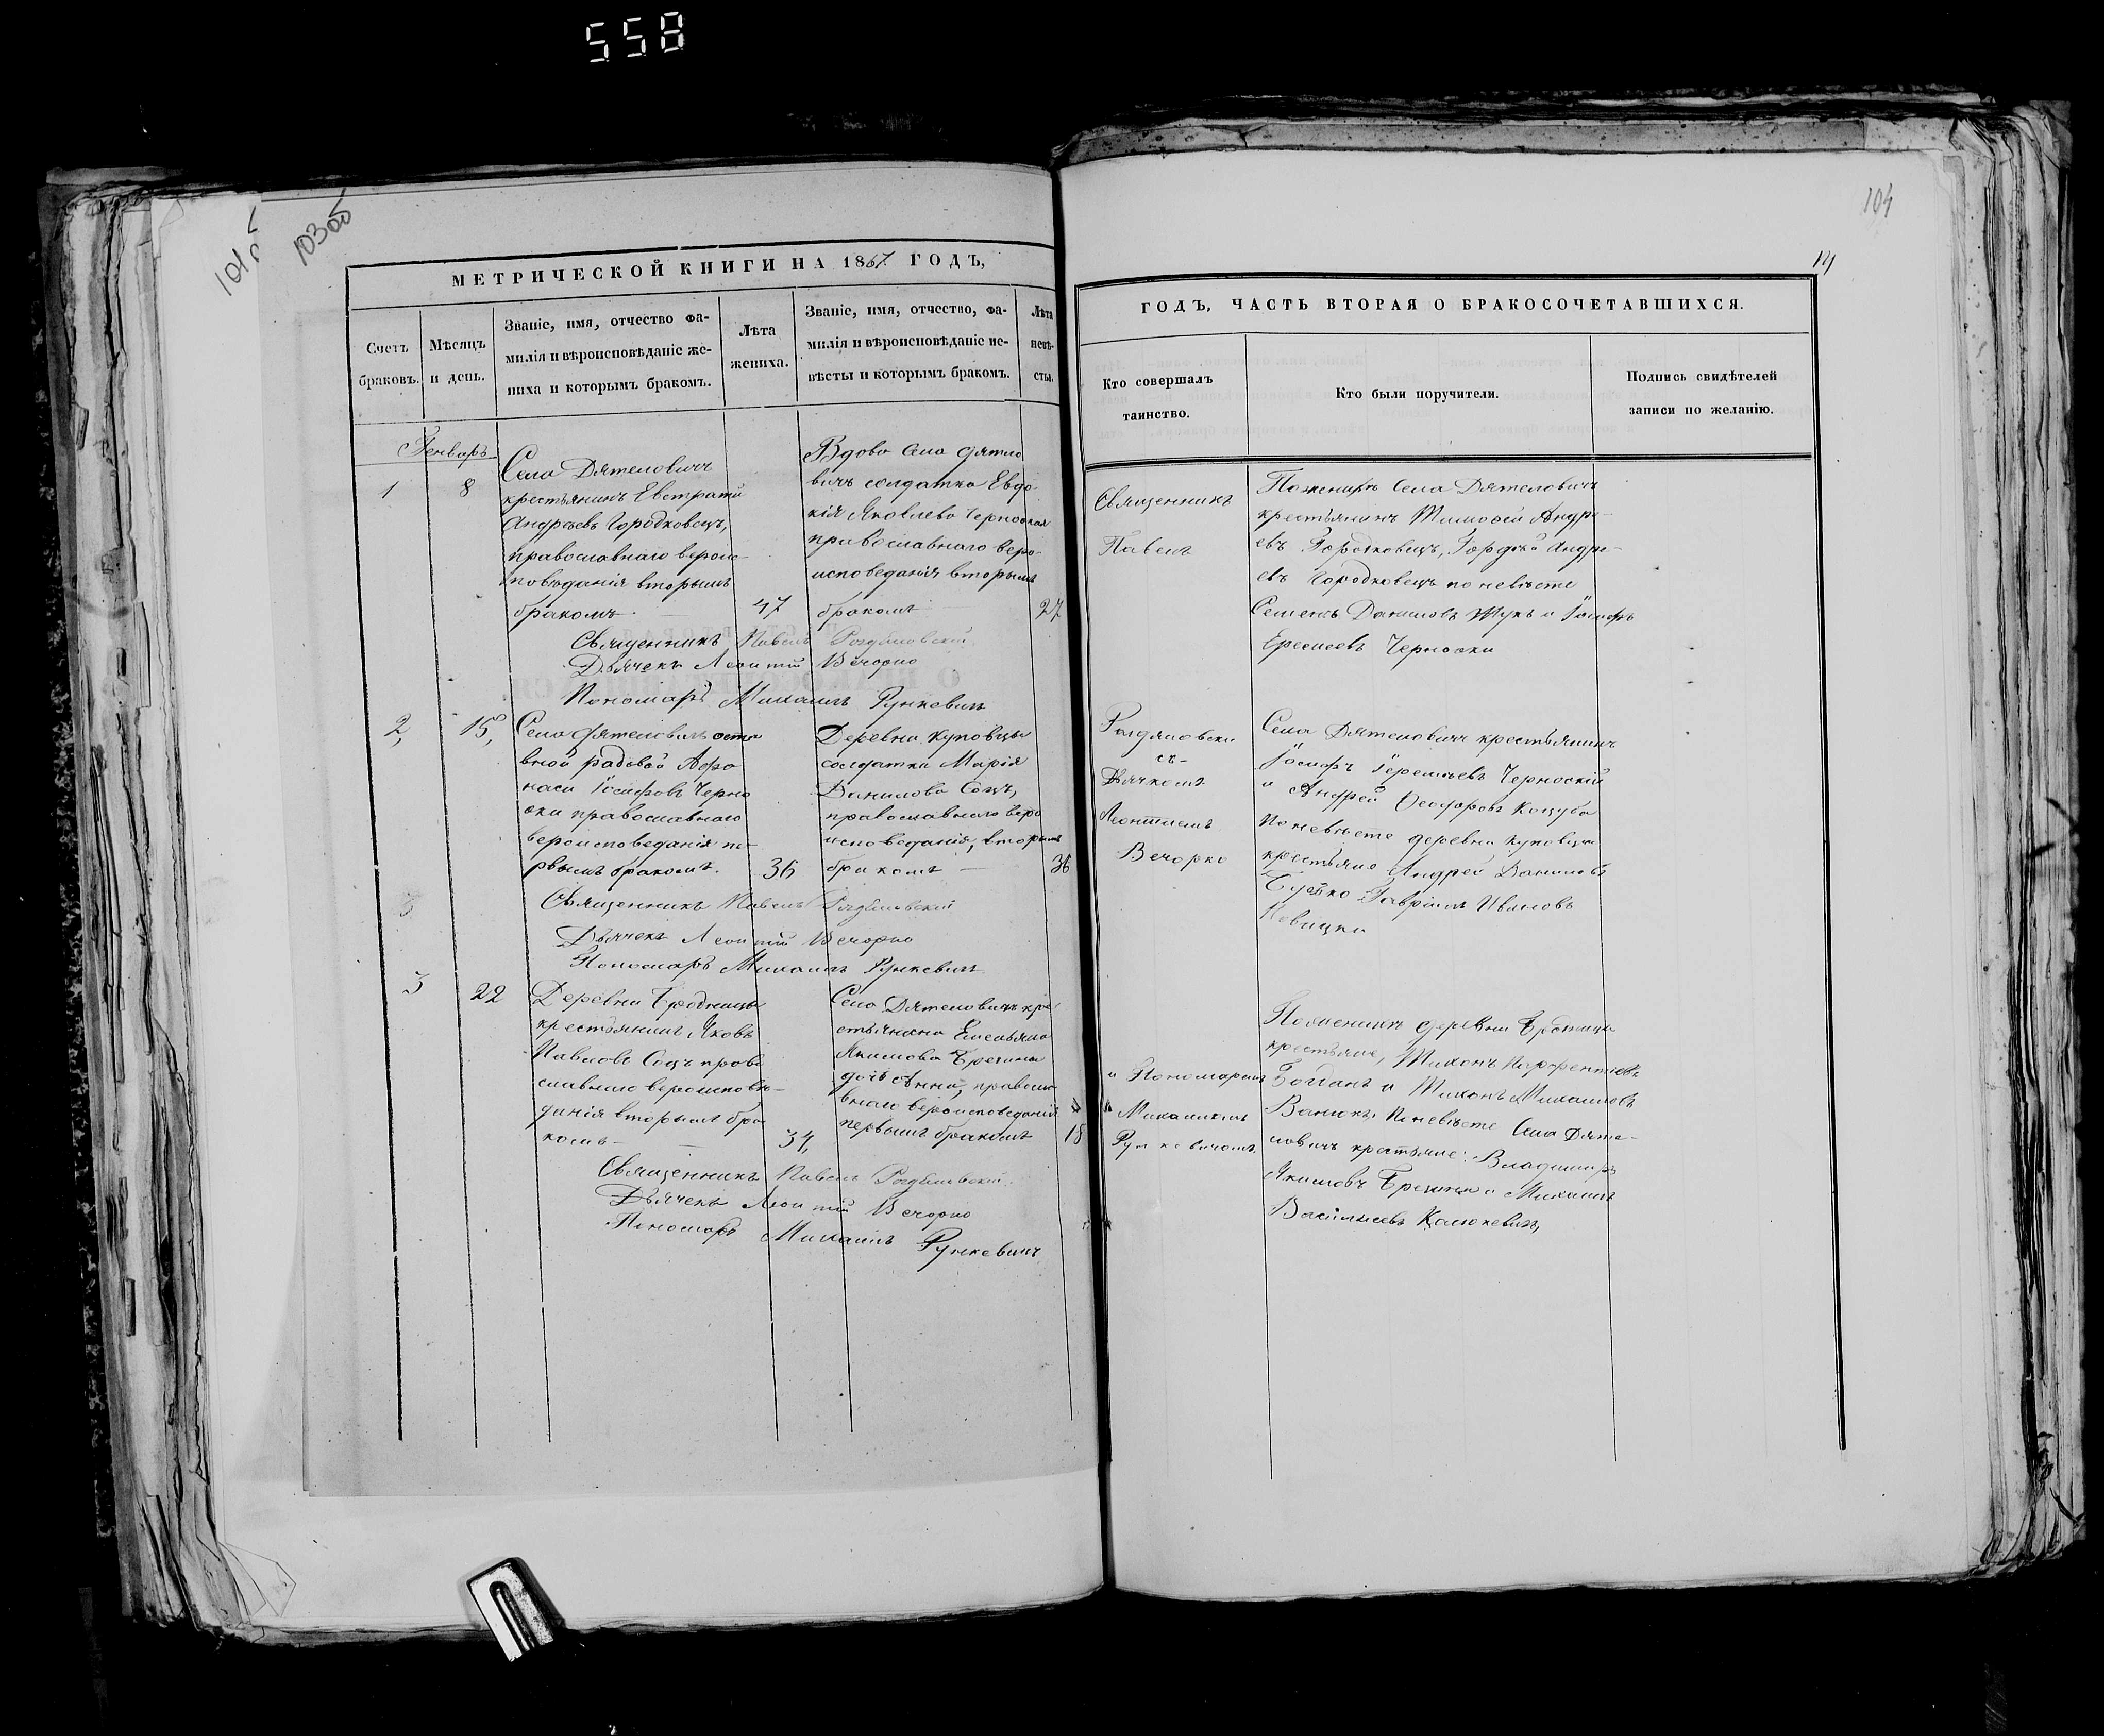 558
101об
103об
104
14
МЕТРИЧЕСКОЙ КНИГИ НА 1867 ГОДЪ,
Счетъ браковъ.
Мѣсяцъ и день.
Званіе, имя, отчество фа-
милія и вѣроисповѣданіе же-
ниха и которымъ бракомъ.
Лѣта
жениха.
Званіе, имя, отчество, фа-
милія и вѣроисповѣданіе не-
вѣсты и которымъ бракомъ.
Лѣта
невѣ-
сты.
Генварь
1
8
Села Дятеловичъ
крестьянинъ Евстратій
Андреевъ Городковецъ,
православнаго вероис-
поведанія вторымъ
бракомъ
47
Вдова села Дятло
вичъ солдатка Евдо-
кія Яковлева Черноокая
православнаго веро-
исповеданія вторымъ
бракомъ
27
Священникъ Павелъ
Дьячекъ Леонтій Вечорко
Пономарь Михаилъ Рункевичъ
2,
15,
Села Дятеловичъ
вной радовой Афа
наси Іосифовъ Черно
оки православнаго
вероисповеданія пе-
рвымъ бракомъ.
36
Деревни Куповцы
солдатка Марія
Данилова Соцъ,
православнаго веро
исповеданія, вторымъ
бракомъ
36
Священникъ Павелъ
Дьячекъ Леонтій Вечорко
Пономарь Михаилъ Рункевичъ
3
22
Деревни Бродница
крестьянинъ Яковъ
Павловъ Соцъ право
славнаго вероисповѣ-
данія вторымъ бра
комъ
34,
Села Дятеловичъ кре
стьянина
Якимова
православ
внаго вероисповеданія
первымъ бракомъ
18
Священникъ Павелъ
Дьячекъ Леонтій Вечорко
Пономарь Михаилъ Рункевичъ
ГОДЪ, ЧАСТЬ ВТОРАЯ О БРАКОСОЧЕТАВШИХСЯ.
Кто совершалъ
таинство.
Кто были поручители.
Подпись свидѣтелей
записи по желанію.
Священникъ
Павелъ
съ
Дьячкомъ
Леонтіемъ
Вечорко
и Пономаремъ
Михаиломъ
Рункевичомъ
По женихѣ Села Дятеловичъ
крестьянинъ Тимофей Андре-
евъ Городковецъ, Гордѣй Андре-
евъ Городковецъ по невѣсте
Семенъ Даниловъ Жукъ и Іосифъ
Чернооки
Села Дятеловичъ крестьянинъ
Іосифъ Черноокій
и Андрей Феодоровъ Коцуба
По невѣсте деревни Куповцы
крестьяне Андрей Даниловъ
Гавріилъ Ивановъ
По женихѣ деревни Бродница
крестьяне, Тихонъ Парфентіевъ
Богданъ и Тихонъ Михаиловъ
По невѣсте Села Дяте-
ловичъ крестьяне: Владимиръ
Якимовъ и Михаилъ
Васильевъ